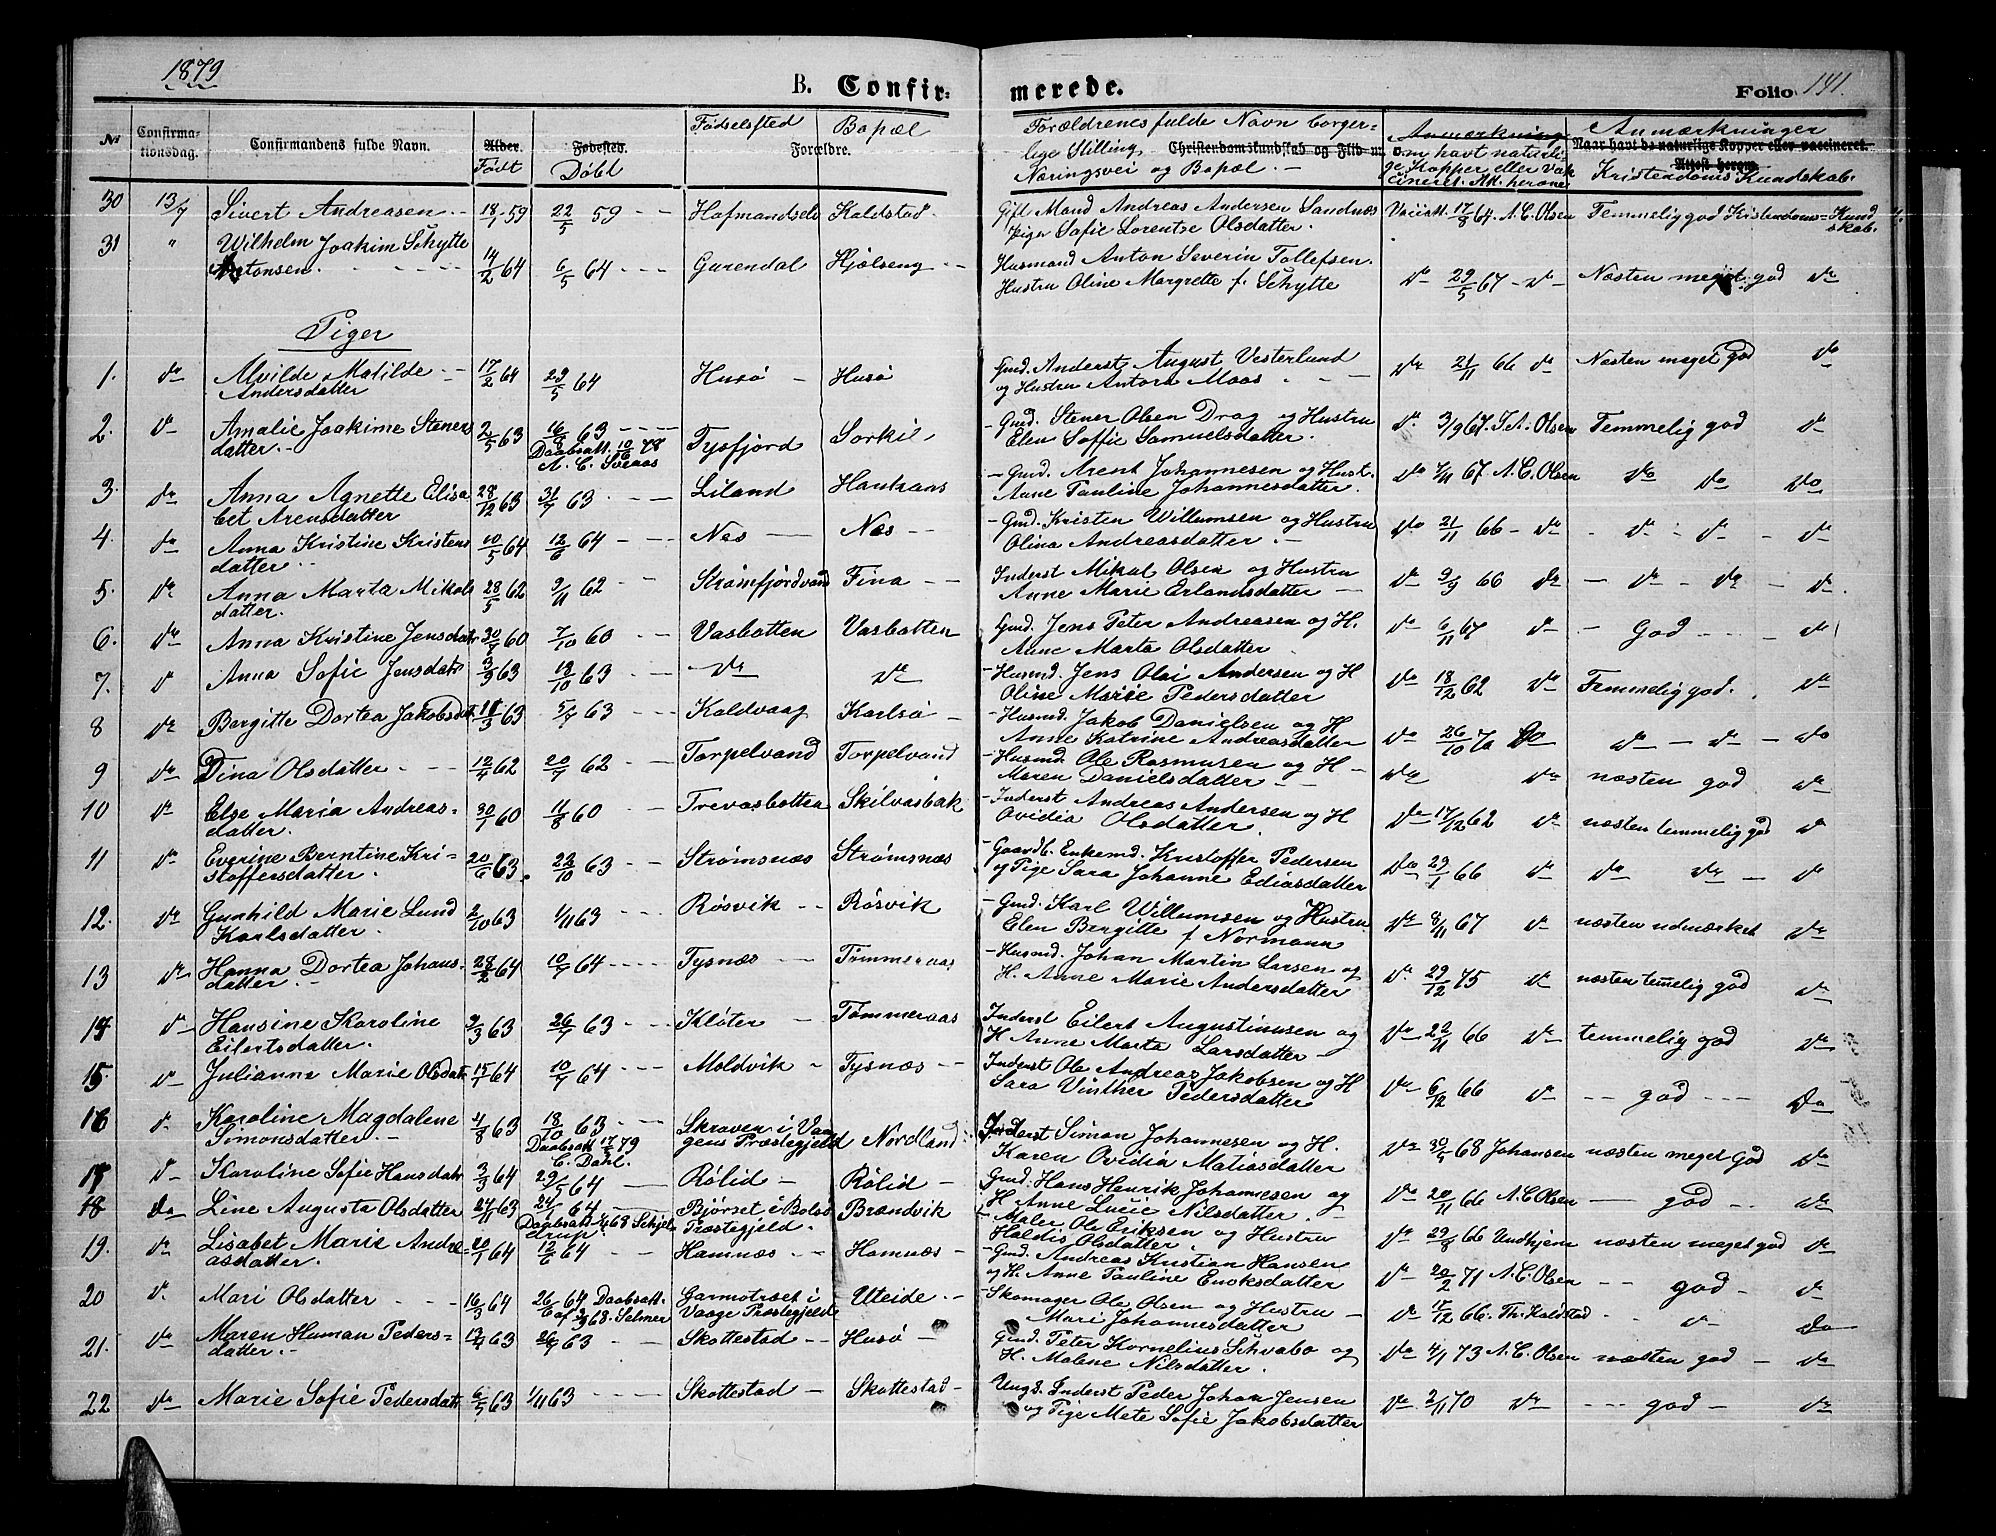 1879
B. Confir=
merede.
Folio 141.
№ Confirma-tionsdag. Confirmandens fulde Navn. Alder. Født Fødested. Døbt Fødselsted Bopæl Forældre.
Forældrenes fulde Navn borger-
lige Stilling, Christendomskundskab og Flid
Næringsvei og Bopæl. -
Anmærkning om havt naturli-ge Kopper eller vak-cineret. Att. herom
Anmærkninger Naar havt de naturlige Kopper eller vaccineret. Attest herom. Kristendoms Kundskab.
30 13/7 Sivert Andreasen 18/1 59 22/5 59 Kaldstad Gift Mand Andreas Andersen Sandnæs Vacc. att. 17/8 64. A. C. Olsen Temmelig god Kristendoms-Kund
Pige Sofie Lorentse Olsdatter. skab.
31 " Wilhelm Joakim Schytte Husmand Anton Severin Tollefsen.
Antonsen. 14/2 64 6/5 64 Garendal Hjelseng Hustru Oline Margrethe f. Schytte do 29/5 67 - do Næsten meget god do
Piger
1. do Alvilde Matilde 17/2 64 29/5 64 Husø - Husø Gmd. Anderst August Vesterlund do 21/11 66 do Næsten meget god do
Andersdatter og Hustru Antora Moas
2. do Amalie Joakime Steners 2/5 63 16/8 63 Tysfjord Sorkil Gmd. Stener Olsen Drag og Hustru do 3/9 67. J. A. Olsen Temmelig god do
datter. Daabsatt. 10/6 78 Elen Soffie Samuelsdatter.
A. C. Sveaas
3. do Anna Agnette Elisa 28/12 63 31/7 63 Liland Haukaas Gmd. Arent Johannesen og Hust. do 7/11 67 A. C. Olsen do do do
bet Arensdatter Anne Pauline Johannesdatter.
4. do Anna Kristine Kristens 10/5 64 12/6 64 Nes Næs Gmd. Kristen Willumsen og Hustru do 21/11 66 - do do do do
datter Olina Andreasdatter
5. do Anna Marta Mikals 28/5 62 2/11 62 Strømfjordvand Fina Inderst Mikal Olsen og Hustru do 9/9 66 do do do do
datter. Anne Marie Erlandsdatter
6. do Anna Kristine Jensdatr 30/7 60 7/10 60 Vasbotten Vasbotten Gmd. Jens Peter Andreasen og H. do 6/11 67 do God do
Anne Marta Olsdatter
7. do Anna Sofie Jensdatr 3/9 63 18/10 63 do do Husmd. Jens Olai Andersen og H do 18/12 62 do Temmelig god. do
Oline Marie Pedersdatter
8 do Bergitte Dortea Jakobsdtr 11/3 63 5/7 63 Kaldvaag Karlsø Husmd. Jakob Danielsen og H do 26/10 70 do do do do
Anne Katrine Andreasdatter
9 do Dina Olsdatter 12/4 62 20/7 62 Torpelvand Torpelvand Husmd Ole Rasmusen og H do do næsten god do
Maren Danielsdatter
10 do Else Maria Andreas- 30/7 60 11/8 60 Trevasbotten Skilvasbak Inderst Andreas Andersen og H do 17/12 62 do næsten temmelig god do
datter. Ovidia Olsdatter
11 do Everine Berntine Kri- 20/6 63. 22/10 63 Strømsnæs Strømsnæs Gaardb. Enkemd. Kristoffer Pedersen do 29/1 66 do do do do
stoffersdatter. og Pige Sara Johanne Ediasdatter
12. do Gunhild Marie Lund 2/10 63 1/11 63 Røsvik Røsvik Gmd. Karl Willumsen og Hustru do 8/11 67 do næsten udmærket do
Karlsdatter. Elen Bergitte f Normann
13 do Hanna Dortea Johans- 28/2 64 10/7 64 Tysnæs Tømmeraas Husmd. Johan Martin Larsen og do 29/12 75 do næsten temelig god do
datter. H. Anne Marie Andersdatter
14. do Hansine Karoline 9/3 63 26/7 63 Kløter Tømmeraas Inderst Eilert Augustinusen og do 22/11 66 do temmelig god do
Eilertsdatter. H Anne Marta Larsdatter
15 do Julianne Marie Olsdatr 15/1 64 10/7 64 Moldvik Tysnæs Inderst Ole Andreas Jakobsen og H do 6/12 66 do god do
Sara Vinther Pedersdatter
16 do Karoline Magdalene 4/8 63 18/10 63 Skraven i Vaa Nordland Inderst Simon Johannesen og H. do 30/4 68 Johansen næsten meget God do
Simonsdatter. Daabsatt 17/3 79 gens Præstegjeld Karen Ovidia Matiasdatter
C. Dahl.
17 do Karoline Sofie Hansdatr 3/3 64 29/5 64 Rølid Rølid Gmd. Hans Henrik Johannesen og do 20/11 66 A. C. Olsen god do
H. Anne Lucie Nilsdatter.
18 do Line Augusta Olsdatter 24/11 63 24/1 64 Bjørset i Bolsø Brandvik Maler Ole Eriksen og Hustru do 29/8 66 Undhjem næsten meget god do
Præstegjeld. Haldis Olsdatter.
19. do Lisabet Marie Andre- 20/1 64 12/6 64 Hamnæs Hamnæs Gmd. Andreas Kristian Hansen do 20/2 71 A. C. Olsen god do
asdatter. og H. Anne Pauline Enoksdatter
20 do Mari Olsdatter 16/3 64 26/6 64 Daabsatt. Garmotræet i Uteide Skomager Ole Olsen og Hustru do 15/12 66. Th. Kaldstad do do
af 2/3 68. Selmer Vaage Præstegjeld Mari Johannesdatter
21. do Maren Human Peders- 13/4 63 26/7 63 Skottestad Husø Gmd. Peter Kornelius Schvabo og do 4/1 73 A. C. Olsen næsten god do
datter. H. Malene Nilsdatter.
22 do Marie Sofie Pedersdatr 6/5 63 1/11 63 Skottestad Skottestad Ungk. Inderst Peder Johan Jensen do 2/11 70 do god do
og Pige Mete Sofie Jakobsdatter